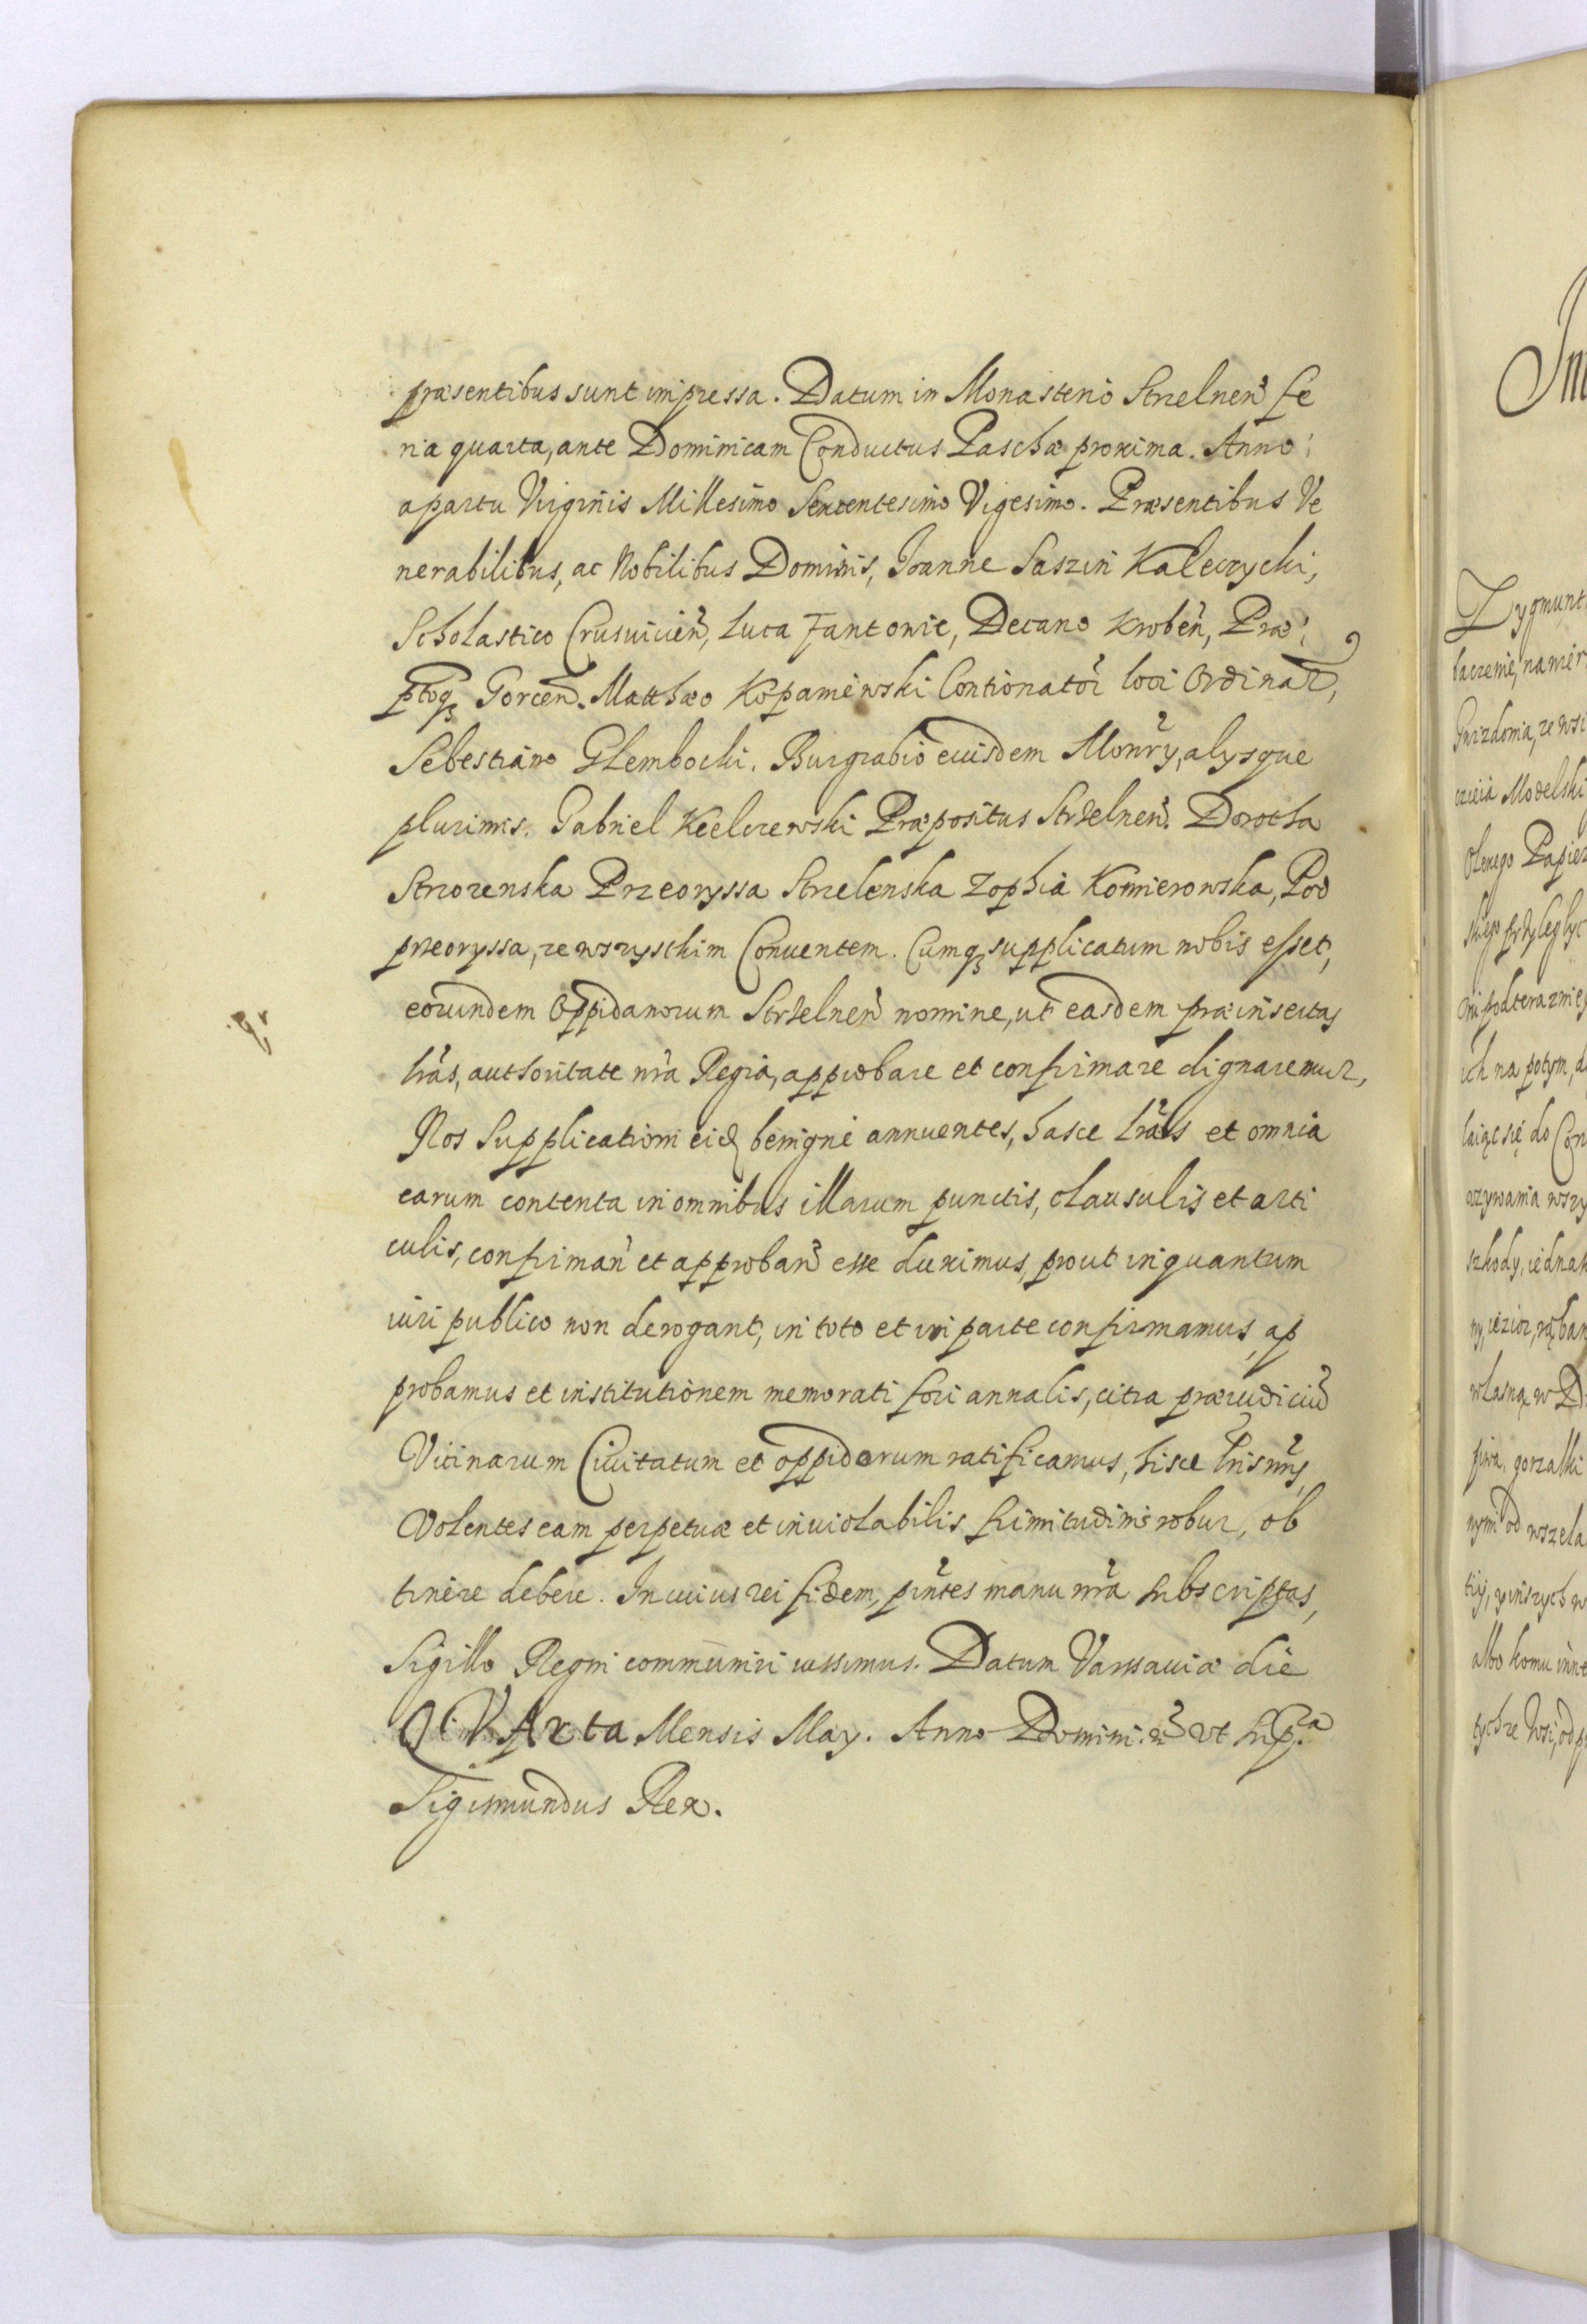 præsentibus sunt impressa. Datum in Monasterio Strzelneñ fe
ria quarta, ante Dominicam Conductus Paschæ proxima. Anno
a partu Virginis Millesimo Sexcentesimo Vigesimo. Præsentibus Ve
nerabilibus, ac Nobilibus Dominis, Joanne Saszin Kaleczycki,
Scholastico Crusuicieñ, Luca Fantonie, Decano Krobeñ, Præ
ptoq3 Gorceñ. Matthæo Kopaminski Contionator loci Ordinar,
Sebestiano Glembocki. Burgrabio eiusdem Monrÿ, alÿsque
plurimis. Gabriel Kielczewski Præpositus Strzelneñ. Dorotha
Strzozenska Przeoryssa Strzelenska Zophia Komierowska, Pod
przeoryssa, ze wszystkim Conuentem. Cumq3 supplicatum nobis esset,
eorundem Oppidanorum Strzelneñ nomine, ut easdem præinsertas
lrãs, authoritate nrã Regia, approbare et confirmare dignaremur,
Nos Supplicationi eid benigne annuentes, hasce lrãs et omnia
earum contenta in omnibus illarum punctis, clausulis et arti
culis, confirmañ et approbañ esse duximus, prout inquantum
iuri publico non derogant, in toto et in parte confirmamus, ap
probamus et institutionem memorati fori annalis, citra præiudiciũ
Vicinarum Ciuitatum et oppidorum ratificamus, hisce lris nris,
Volentes eam perpetuæ et inuiolabilis firmitudinis robur, ob
tinere debere. In cuius rei fidem, pñtes manu nrã subscriptas,
Sigillo Regni communiri iussimus. Datum Varsauiæ die
QVARta Mensis May. Anno Domini. ut supra
Sigismundus Rex.
Im
Zygmunt
baczenie, na mier
Gnizdonia, ze wsi
Modelski
Papiez
ich na potym, a
do Con
wszy
szkody, iednak
własną w D
piwa, gorzałki
nym od wszela
tiÿ, y inszych w
albo komu inne
tych ze Wsi, od p